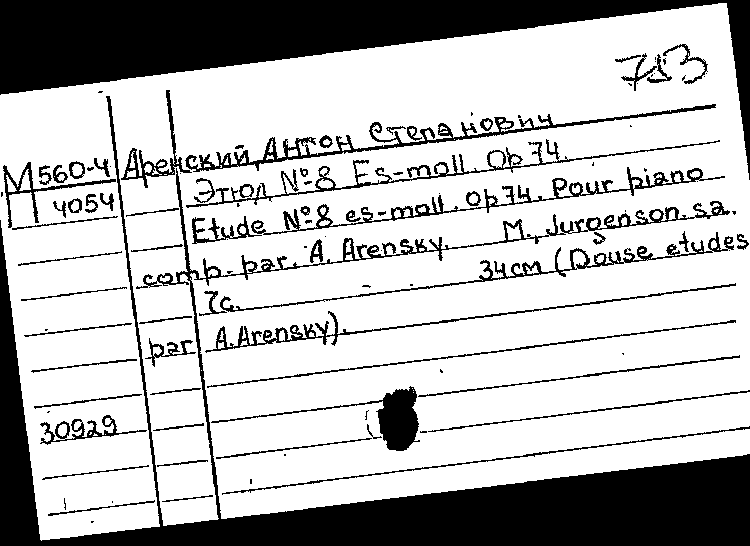 753
М560-4 Аренский, Антон Степанович
4054 Этюд №8 Es-moll. Op 74.
Etude №8 es-moll. Op 74. Pour piano
comp. par. A. Arensky. M., Jurgenson. s.a.
7с. 34см (Douse etudes
par A. Arensky).
30929